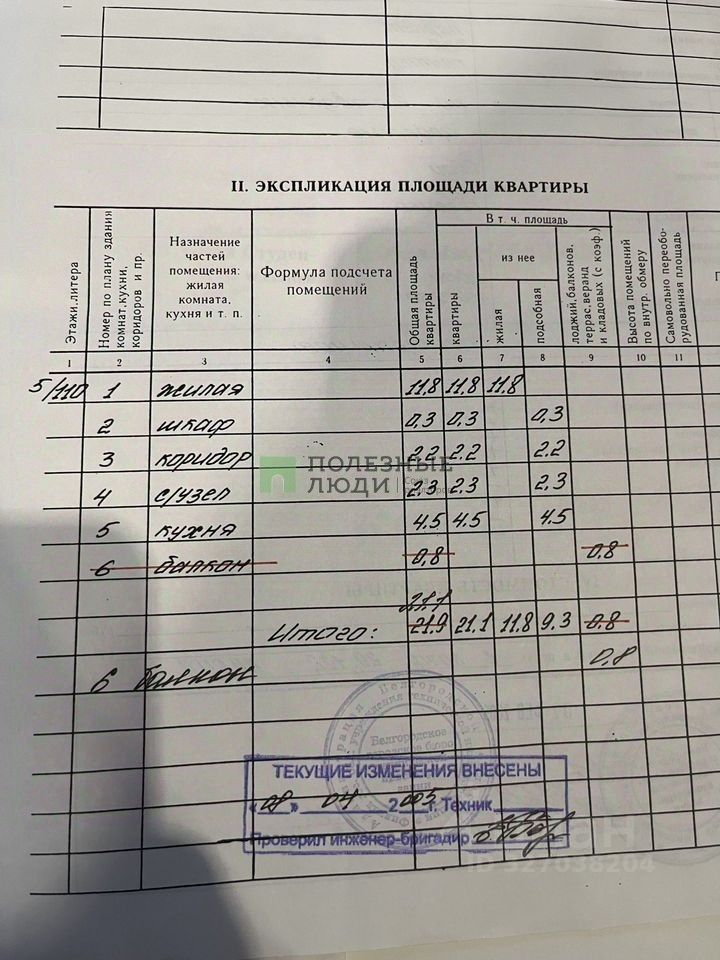 II. ЭКСПЛИКАЦИЯ ПЛОЩАДИ КВАРТИРЫ
Этажи, литера
Номер по плану здания комнат, кухни, коридоров и пр.
Назначение
частей
помещения:
жилая
комната,
кухня и т. п.
Формула подсчета
помещений
Общая площадь
квартиры
В т. ч. площадь
квартиры
из нее
жилая
подсобная
лоджий, балконов,
террас, веранд
и кладовых (с коэф.)
Высота помещений
по внутр. обмеру
Самовольно переобо-
рудованная площадь
1 2 3 4 5 6 7 8 9 10 11
5/110 1 жилая 11,8 11,8 11,8
2 шкаф 0,3 0,3 0,3
3 коридор 2,2 2,2 2.2
4 с/узел 2,3 2,3 2,3
5 кухня 4.5 4.5 4.5
6 балкон 0,8 0,8
21.1
Итого: 21.9 21.1 11.8 9.3 0.8
0,8
6 балкон
ПОЛЕЗНЫЕ
ЛЮДИ
Белгородское
ТЕКУЩИЕ ИЗМЕНЕНИЯ ВНЕСЕНЫ
« 08 » 04 2003 г. Техник
Проверил инженер-бригадир
ID 327038204